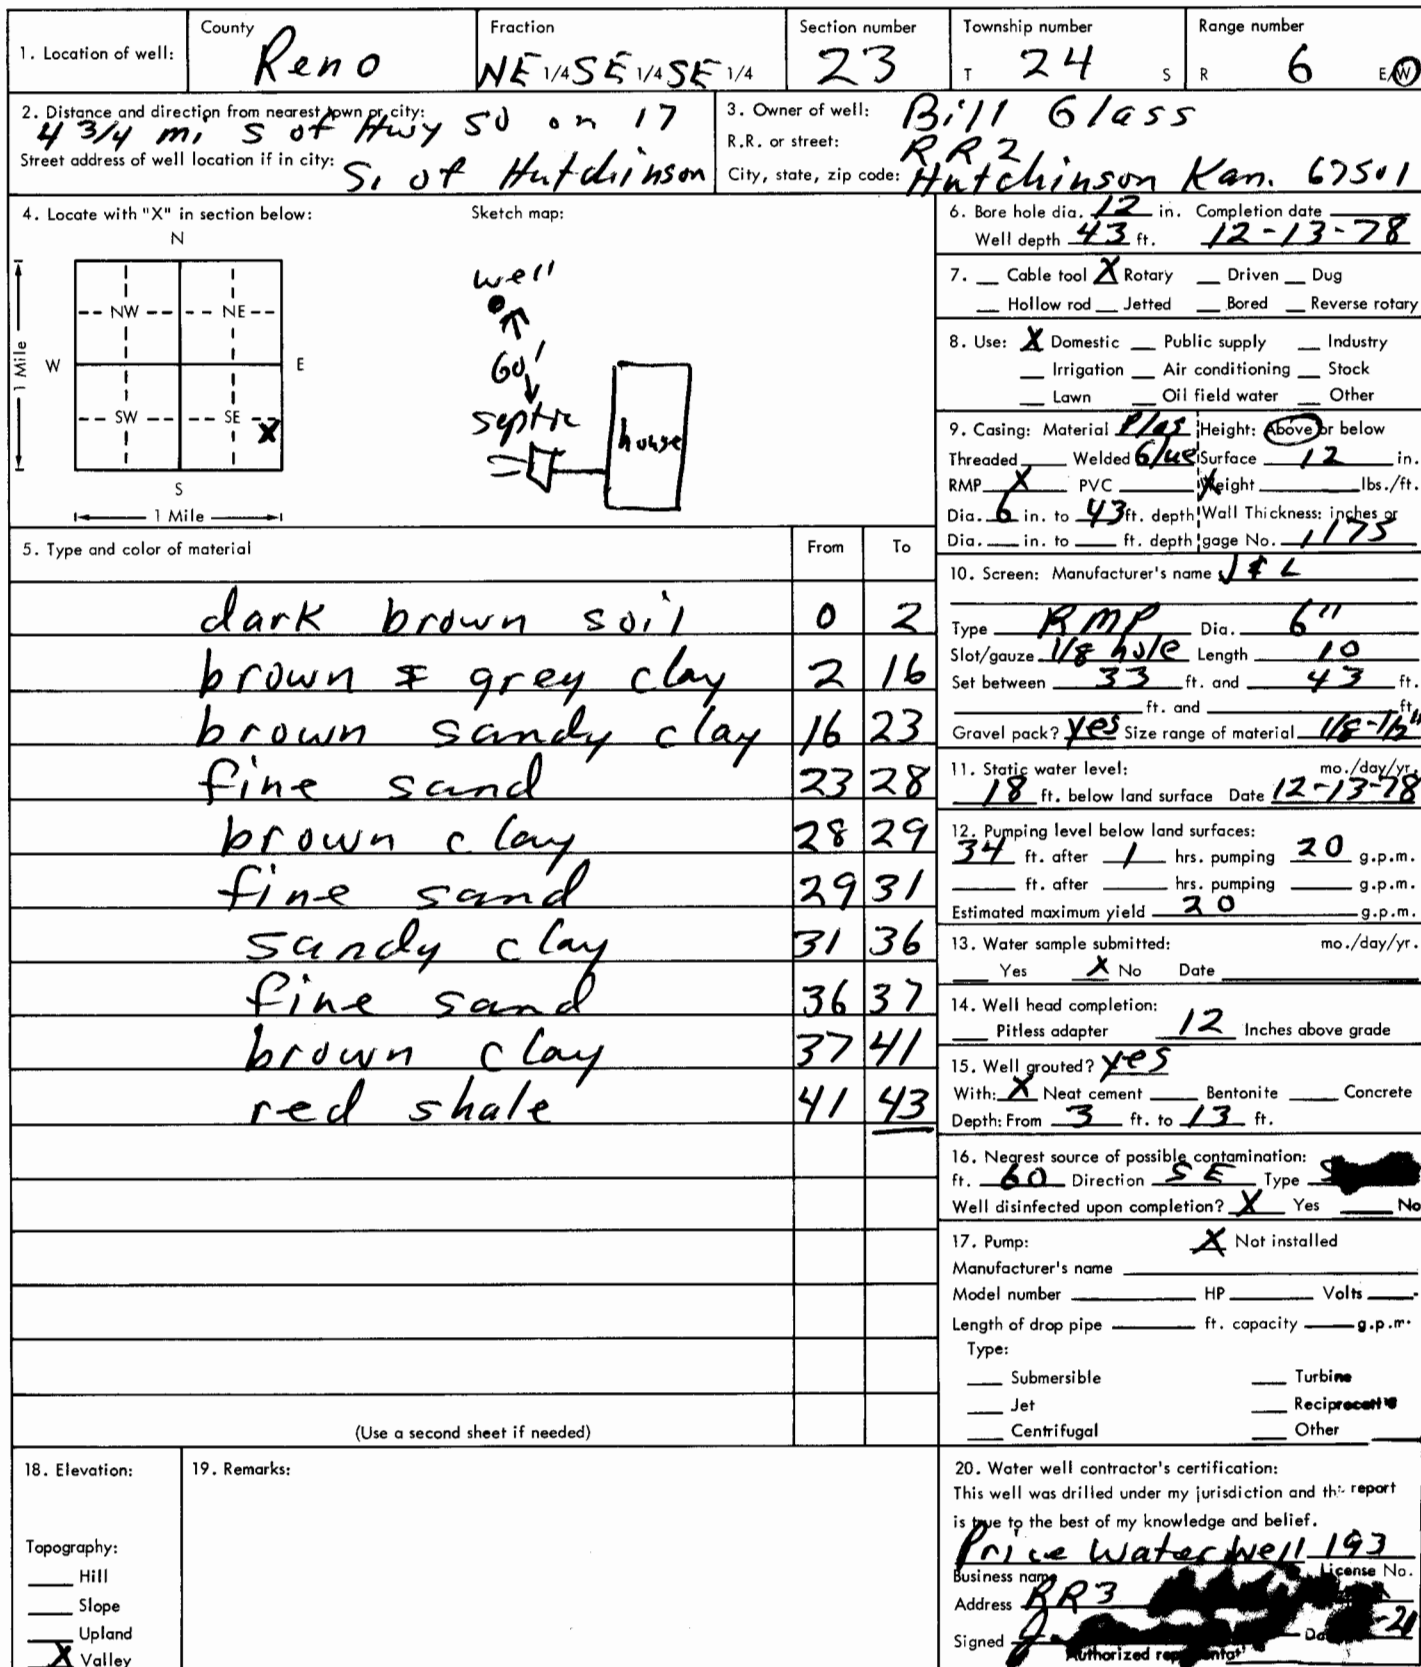 1. Location of well: County Reno Fraction NE 1/4 SE 1/4 SE 1/4 Section number 23 Township number T 24 S Range number R 6 E/W
2. Distance and direction from nearest town or city: 4 3/4 mi S of Hwy 50 on 17
Street address of well location if in city: S. of Hutchinson
3. Owner of well: Bill Glass
R.R. or street: RR2
City, state, zip code: Hutchinson Kan. 67501
4. Locate with "X" in section below:
N
NW NE
W E
SW SE X
S
1 Mile
1 Mile
Sketch map:
well
60'
septic
house
5. Type and color of material From To
dark brown soil 0 2
brown & grey clay 2 16
brown sandy clay 16 23
fine sand 23 28
brown clay 28 29
fine sand 29 31
sandy clay 31 36
fine sand 36 37
brown clay 37 41
red shale 41 43
(Use a second sheet if needed)
6. Bore hole dia. 12 in. Completion date
Well depth 43 ft. 12-13-78
7. __ Cable tool X Rotary __ Driven __ Dug
__ Hollow rod __ Jetted __ Bored __ Reverse rotary
8. Use: X Domestic __ Public supply __ Industry
__ Irrigation __ Air conditioning __ Stock
__ Lawn __ Oil field water __ Other
9. Casing: Material Plas Height: Above or below
Threaded __ Welded Glue Surface 12 in.
RMP X PVC __ Weight __ lbs./ft.
Dia. 6 in. to 43 ft. depth Wall Thickness: inches or
Dia. __ in. to __ ft. depth gage No. 1175
10. Screen: Manufacturer's name J & L
Type RMP Dia. 6"
Slot/gauze 1/8 hole Length 10
Set between 33 ft. and 43 ft.
__ ft. and __ ft.
Gravel pack? yes Size range of material 1/8-1/2"
11. Static water level: mo./day/yr.
18 ft. below land surface Date 12-13-78
12. Pumping level below land surfaces:
34 ft. after 1 hrs. pumping 20 g.p.m.
__ ft. after __ hrs. pumping __ g.p.m.
Estimated maximum yield 20 g.p.m.
13. Water sample submitted: mo./day/yr.
__ Yes X No Date __
14. Well head completion:
__ Pitless adapter 12 Inches above grade
15. Well grouted? yes
With: X Neat cement __ Bentonite __ Concrete
Depth: From 3 ft. to 13 ft.
16. Nearest source of possible contamination:
ft. 60 Direction SE Type
Well disinfected upon completion? X Yes __ No
17. Pump: X Not installed
Manufacturer's name __
Model number __ HP __ Volts __
Length of drop pipe __ ft. capacity __ g.p.m.
Type:
__ Submersible __ Turbine
__ Jet __ Reciprocating
__ Centrifugal __ Other
18. Elevation:
Topography:
__ Hill
__ Slope
__ Upland
X Valley
19. Remarks:
20. Water well contractor's certification:
This well was drilled under my jurisdiction and this report
is true to the best of my knowledge and belief.
Price Water Well 193
Business name License No.
Address RR3
Signed
Authorized